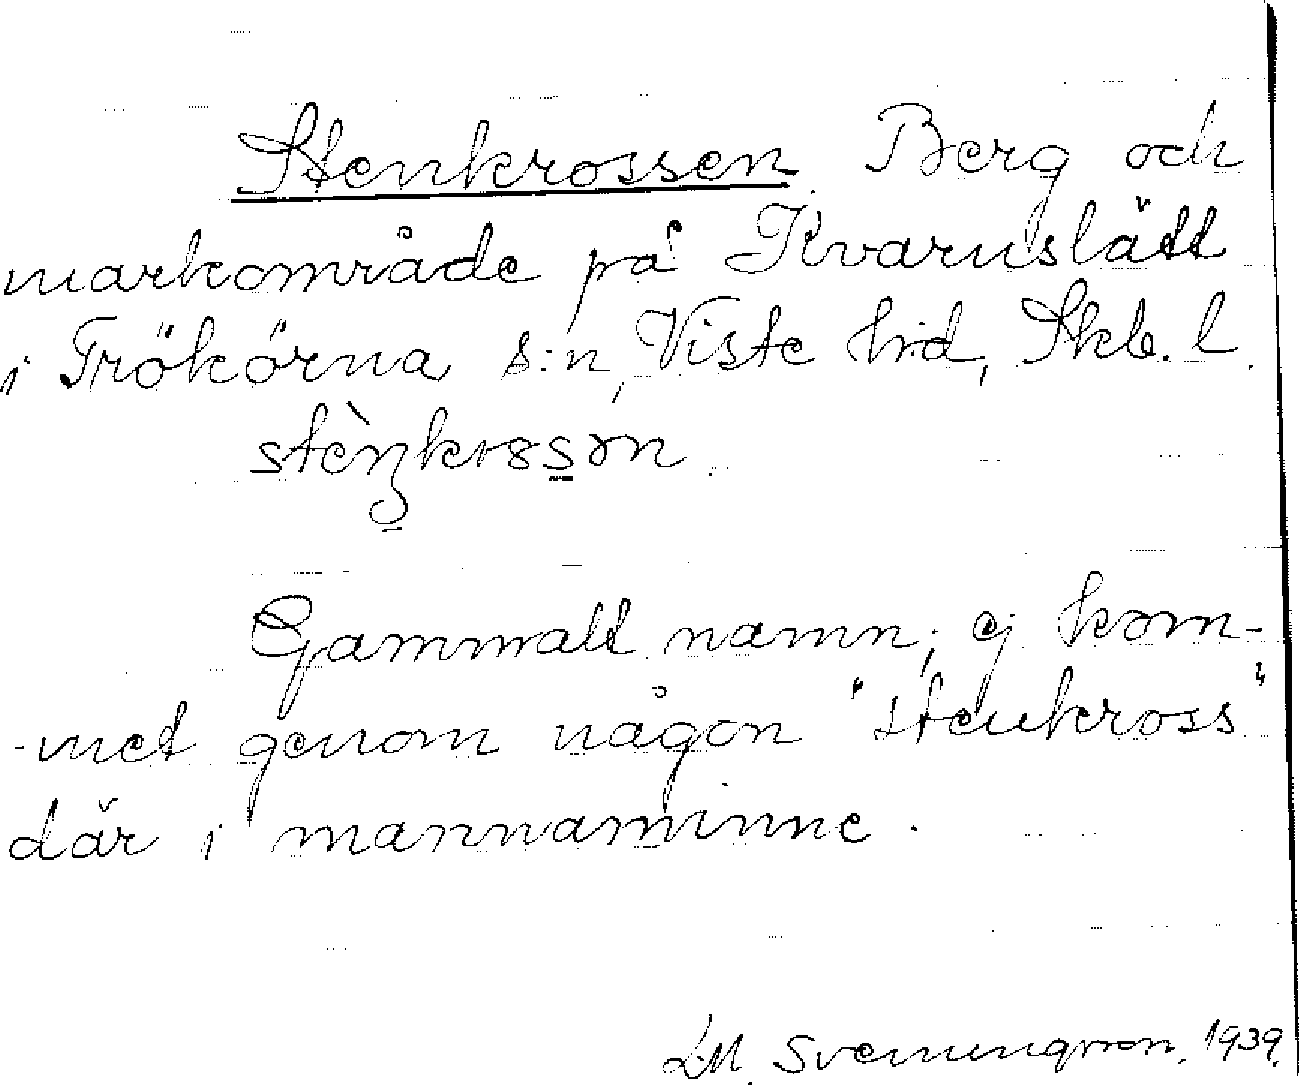 Stenkrossen. Berg och
markområde på Kvarnslätt
i Trökörna s:n, Viste hrd, Skb. l.
Gammalt namn; ej kom-
-met genom någon "stenkross"
där i mannaminne.
L.M. Svenungsson. 1939.